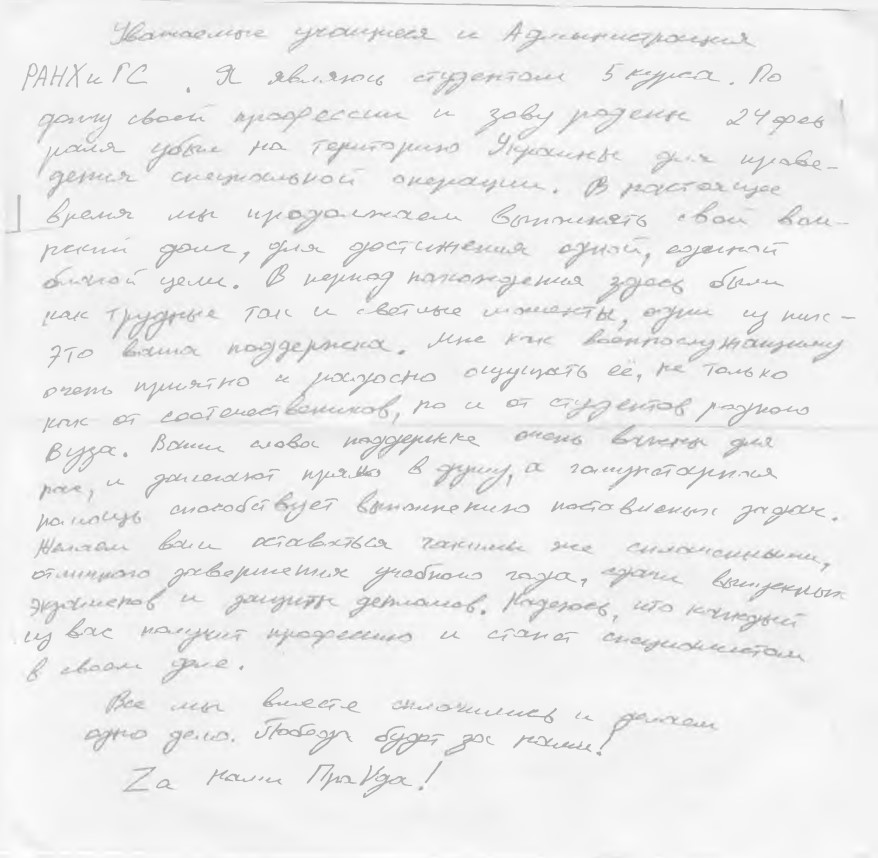 Уважаемые учащиеся и Администрация
РАНХиГС. Я являюсь студентом 5 курса. По
долгу своей профессии и зову родины 24 фев
раля убыл на територию Украины для прове-
дения специальной операции. В настоящее
время мы продолжаем выполнять свой вои-
нский долг, для достижения одной, единой
общей цели. В период нахождения здесь были
как трудные так и светлые моменты, один из них -
это ваша поддержка. Мне как военнослужащему
очень приятно и радосно ощущать её, не только
как от соотечествеников, но и от студентов родного
Вуза. Ваши слова поддержке очень важны для
нас, и долетают прямо в душу, а гамунитарная
помощь способствует выполнению поставленых задач.
Желаем вам оставаться такими же сплоченными,
отличного завершения учебного года, сдачи выпускных
экзаменов и защиты дипломов. Надеюсь, что каждый
из вас получит професию и станет специалистом
в своем деле.
Все мы вместе сплотились и делаем
одно дело. Победа будет за нами!
Zа нами ПраVда!